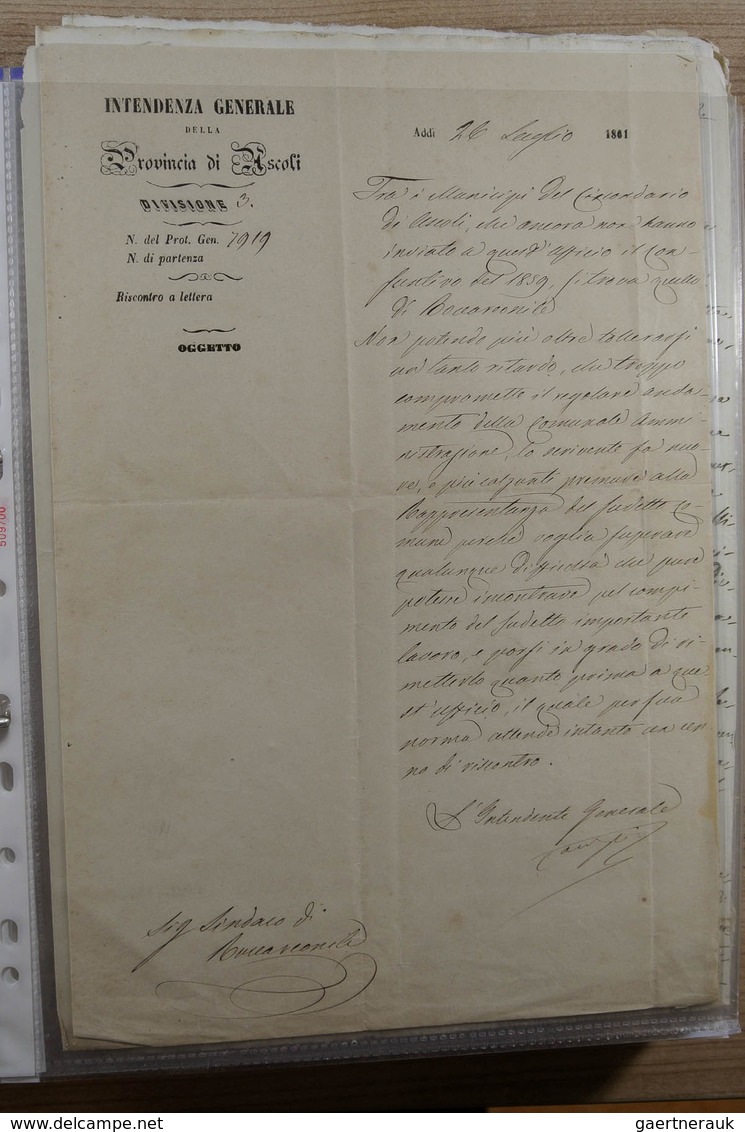 INTENDENZA GENERALE
DELLA
Provincia di Ascoli
DIVISIONE 3.
N. del Prot. Gen. 7919
N. di partenza
Riscontro a lettera
OGGETTO
Addì 26 Luglio 1861
Tra i Municipi del Circondario
di Ascoli, che ancora non hanno
inviato a quest'Ufficio il Con-
suntivo del 1859, si trova quello
di Roccamonile
Non potendo più oltre tollerarsi
un tanto ritardo, che troppo
compromette il regolare anda-
mento della Comunale Ammi-
nistrazione, lo scrivente fa nuo-
ve, e più calzanti premure alla
Rappresentanza del sudetto Co-
mune perchè voglia superare
qualunque difficoltà che pure
potesse incontrare pel compi-
mento del sudetto importante
lavoro, e porsi in grado di ri-
metterlo quanto prima a que-
st'Ufficio, il quale per sua
norma attende intanto un cen-
no di riscontro.
L'Intendente Generale
Sig Sindaco di
Roccamonile
509/00
gaertnerauk @ delcampe.net